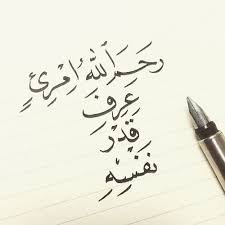 رَحِمَ اللهُ امْرِئٍ
عَرِفَ
قَدْرَ
نَفْسِهِ